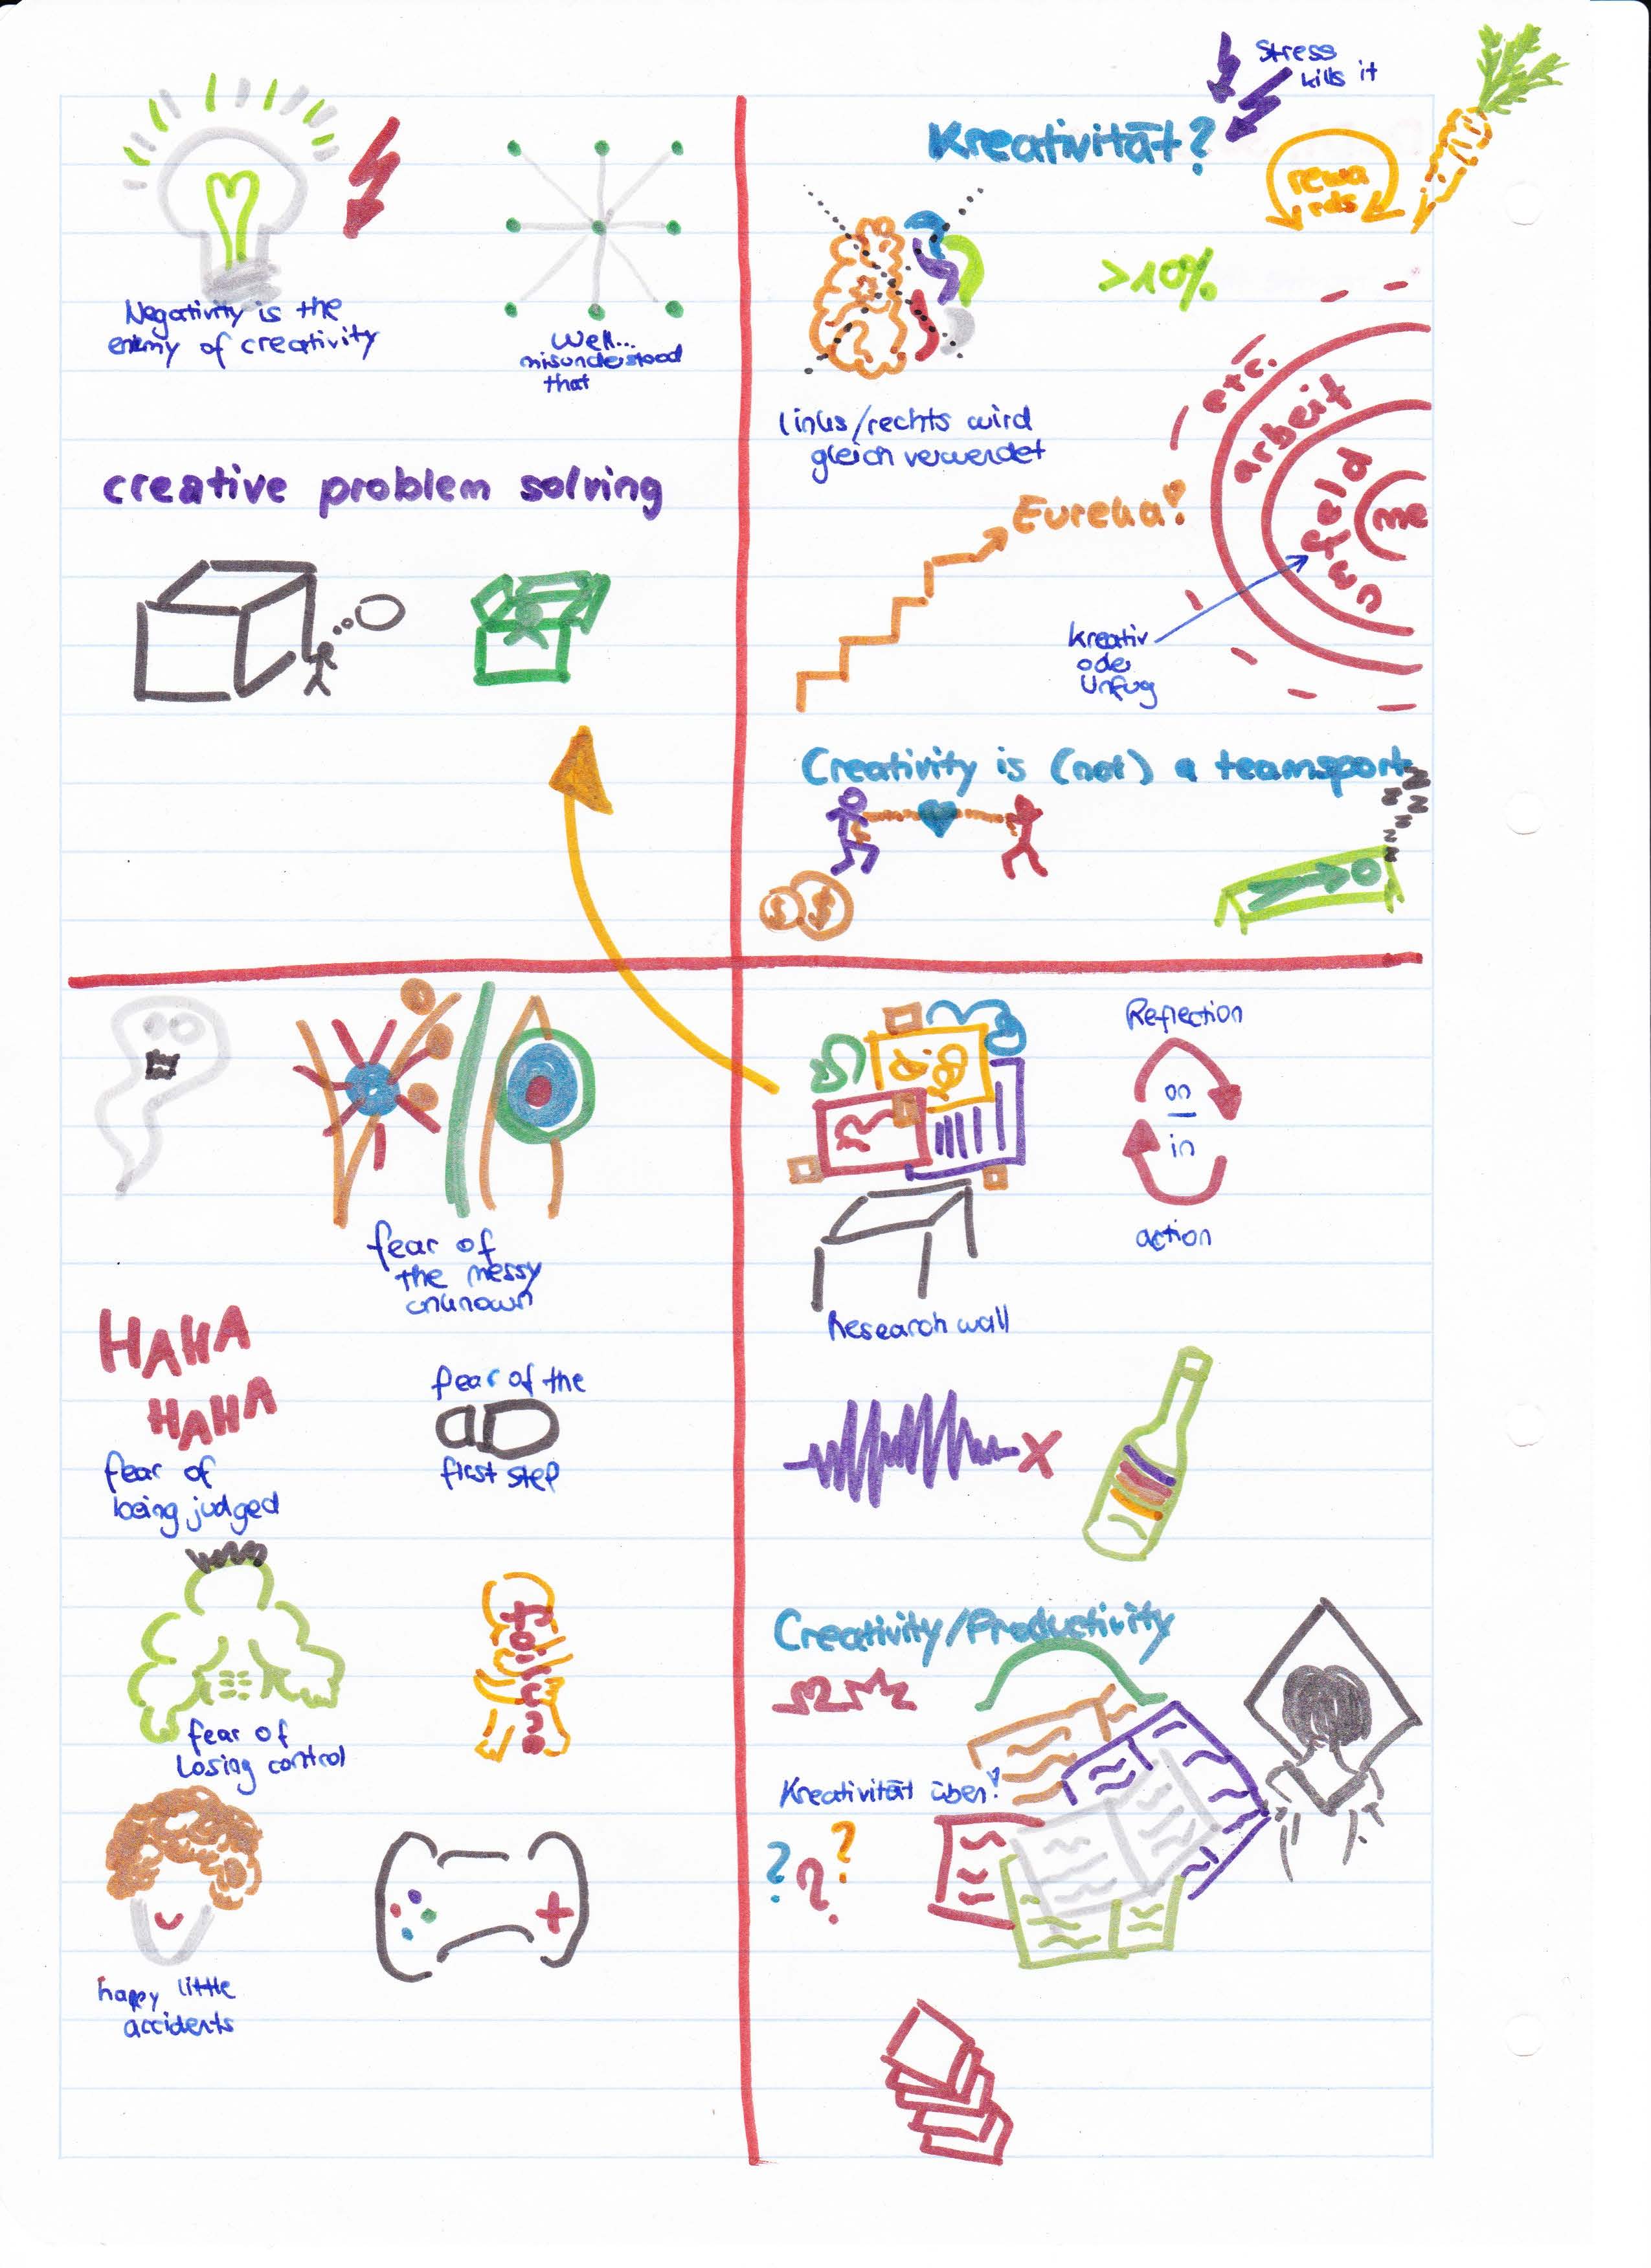 Negativity is the
enemy of creativity
Well...
misunderstood
that
creative problem solving
Stress
kills it
Kreativität?
rewa
rds
>10%
links/rechts wird
gleich verwendet
Eureka!
etc.
arbeit
umfeld
me
kreativ
oder
Unfug
Creativity is (not) a teamsport
zzzzzz
$ $
fear of
the messy
unknown
HAHA
HAHA
fear of
being judged
fear of the
first step
fear of
Losing control
happy little
accidents
Reflection
on
in
action
Research wall
X
Creativity/Productivity
Kreativität üben!
? ? ?